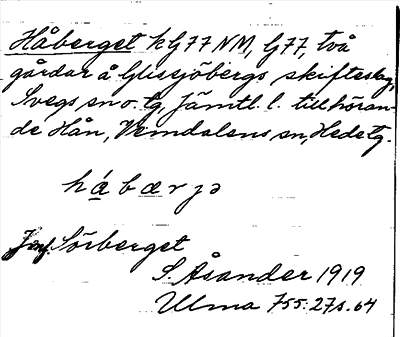 Håberget kG77 NM, G77, två
gårdar å Glissjöbergs skifteslag,
Svegs sn o. tg, Jämtl. l. tillhöran-
de Hån, Vemdalens sn, Hede tg.
hábærjə
Jmf. Sörberget
S Åsander 1919
Ulma 755: 27 s. 64